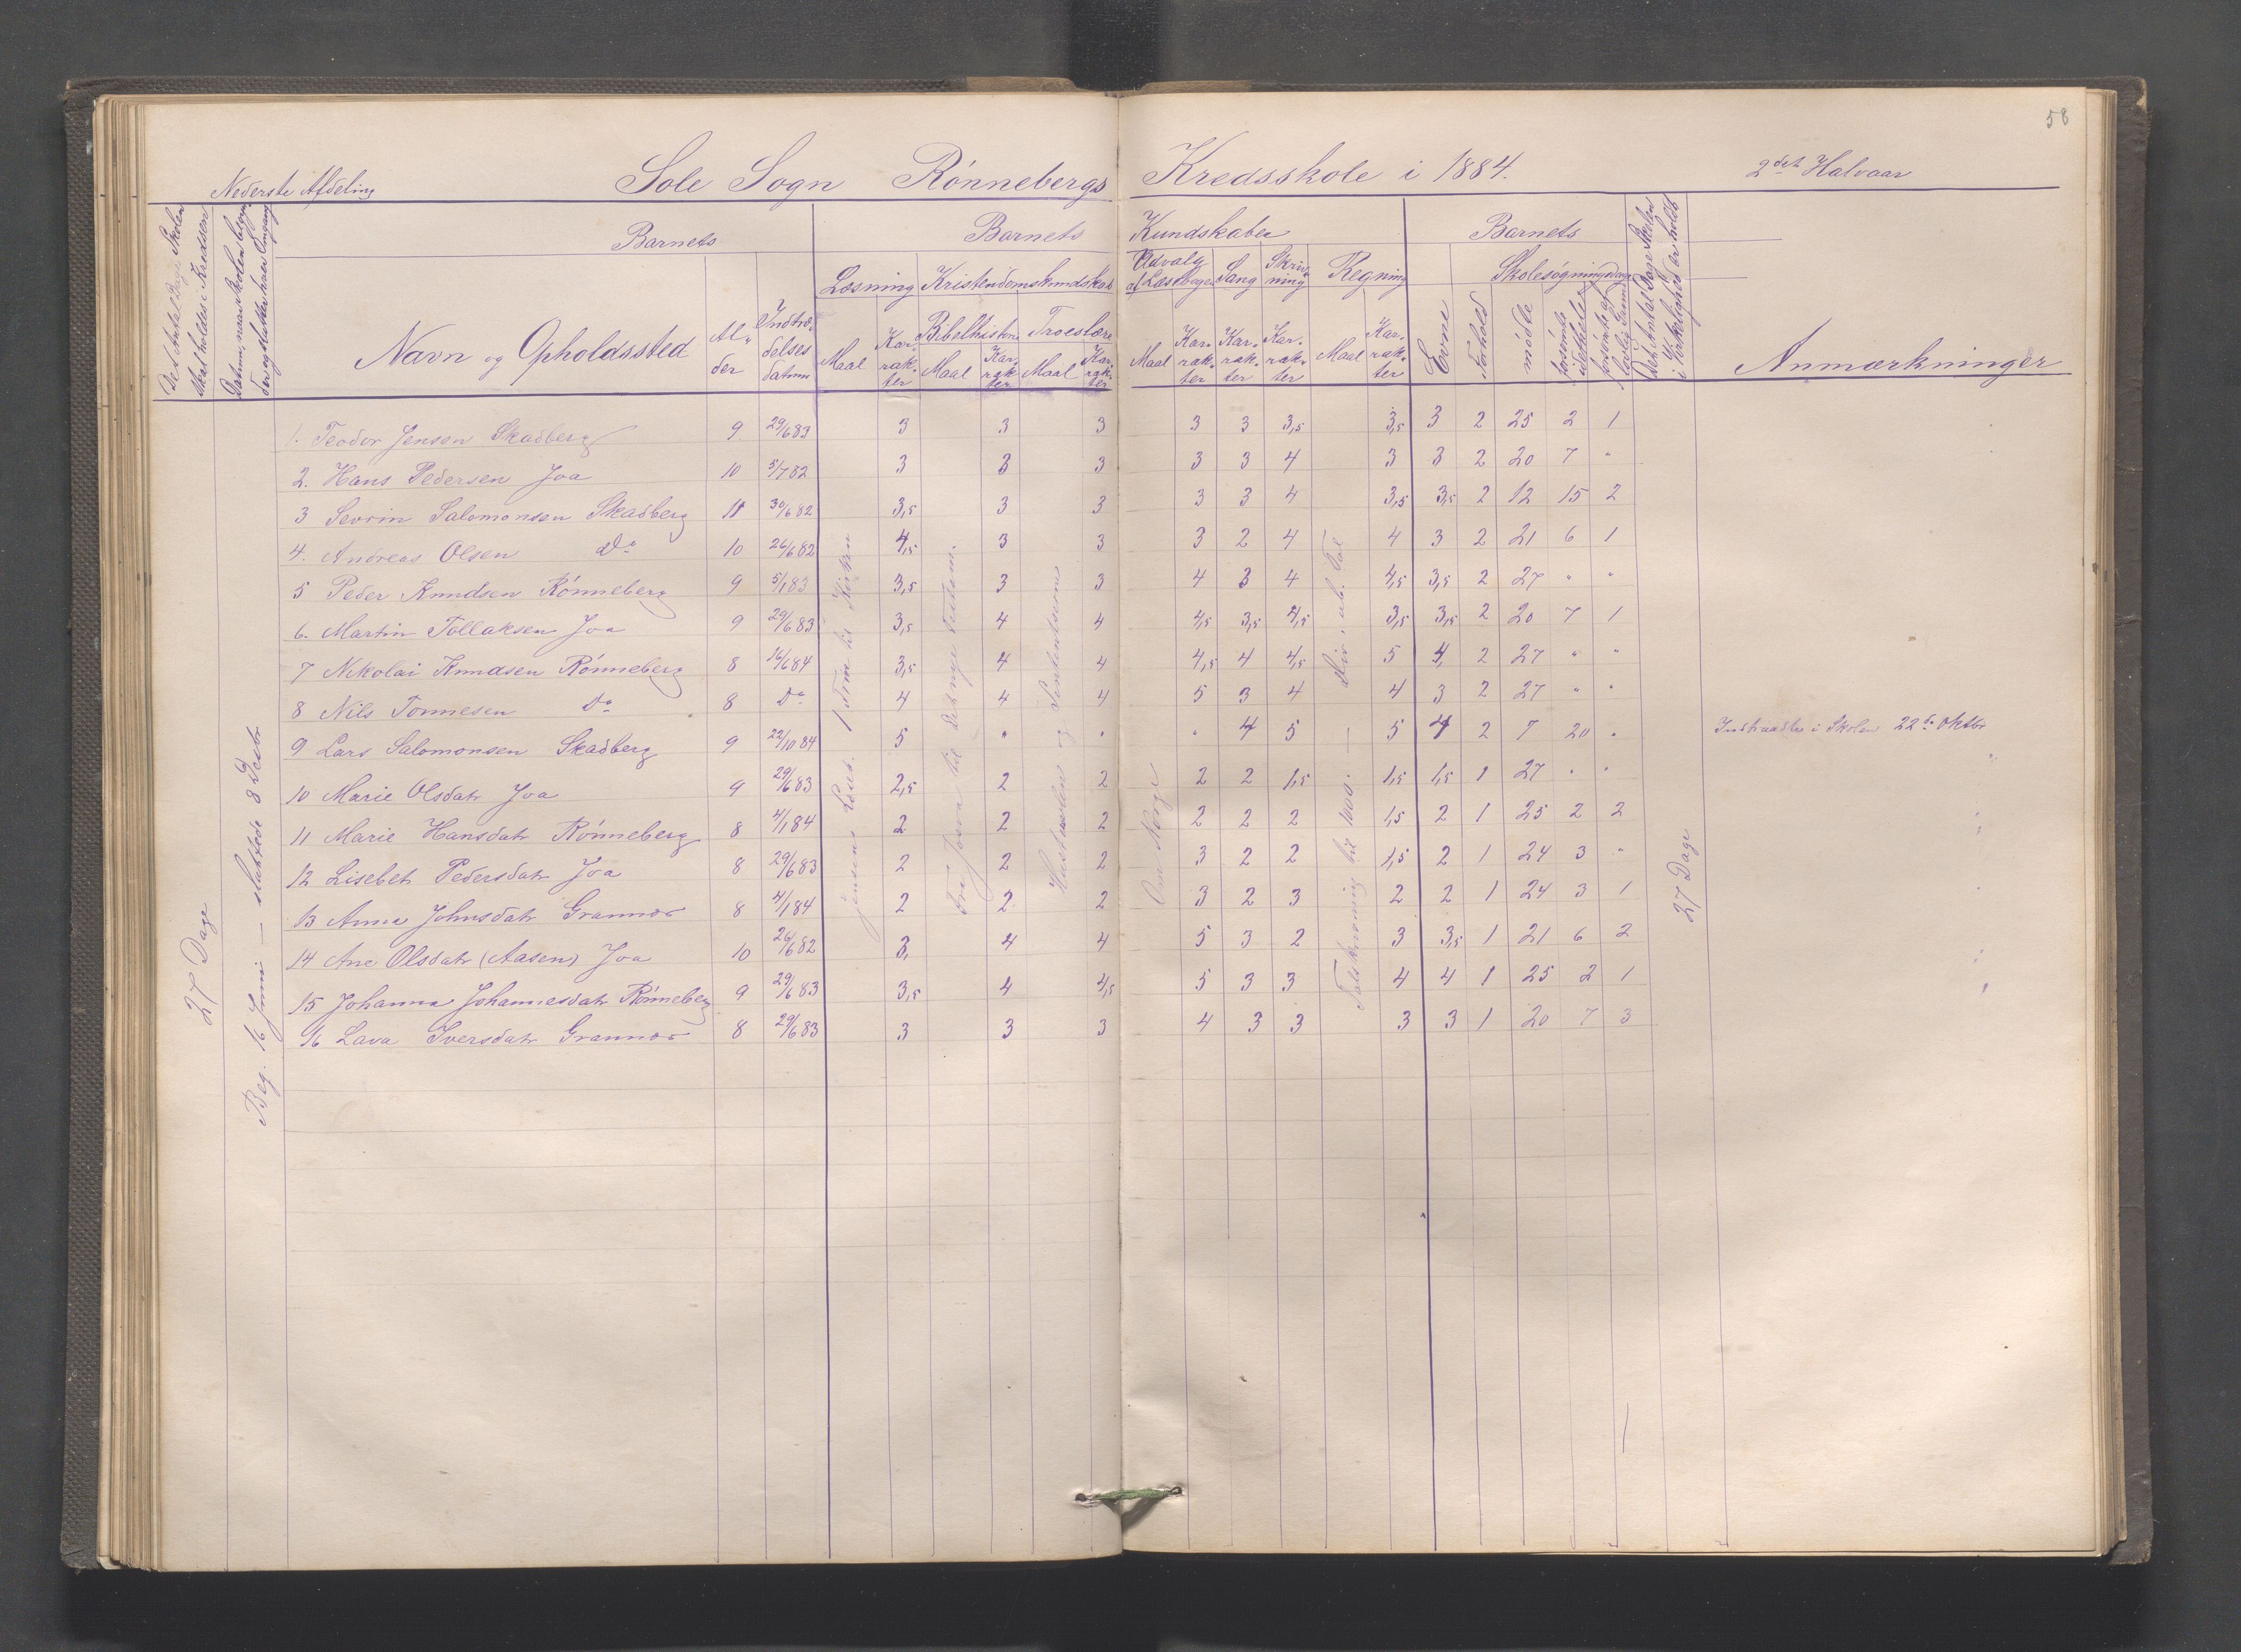 58
Nederste Afdeling Sole Sogn Rönnebergs Kredsskole i 1884. 2det Halvaar
Det Antal Dage Skolen skal holdes i Kredsen
Datum, naar Skolen begynder og slutter hver Omgang
Barnets Barnets Kundskaber Barnets
Læsning Kristendomskundskab Udvalg af Læsebogen Sang Skrivning Regning Skolesøgningsdage
Navn og Opholdssted Alder Indtrædelses datum Maal Karrakter Bibelhistorie Maal Karrakter Troeslære Maal Karrakter Maal Karrakter Karrakter Karrakter Maal Karrakter Evne Forhold mödte forsömte i det hele forsömte af lovlig Grund
Det Antal Dage Skolen i Virkelighed er holdt
Anmærkninger
1. Teodor Jensen Skadberg 9 29/6 83 3 3 3 3 3 3,5 3,5 3 2 25 2 1
2. Hans Pedersen Joa 10 5/7 82 3 3 3 3 3 4 3 3 2 20 7 "
3 Sevrin Salomonsen Skadberg 11 30/6 82 3,5 3 3 3 3 4 3,5 3,5 2 12 15 2
4. Andreas Olsen Do 10 26/6 82 4,5 3 3 3 2 4 4 3 2 21 6 1
5 Peder Knudsen Rönneberg 9 5/1 83 3,5 3 3 4 3 4 4,5 3,5 2 27 " "
6. Martin Tollaksen Joa 9 29/6 83 3,5 4 4 4,5 3,5 4,5 3,5 3,5 2 20 7 1
7 Nikolai Knudsen Rönneberg 8 16/6 84 3,5 4 4 4,5 4 4,5 5 4, 2 27 " "
8 Nils Tonnesen Do 8 Do 4 4 4 5 3 4 4 3 2 27 " "
9 Lars Salomonsen Skadberg 9 22/10 84 5 " " " 4 5 5 4 2 7 20 " Indtraadte i Skolen 22de Oktbr
10 Marie Olsdatr Joa 9 29/6 83 2,5 2 2 2 2 1,5 1,5 1,5 1 27 " "
11 Marie Hansdatr Rönneberg 8 4/1 84 2 2 2 2 2 2 1,5 2 1 25 2 2
12 Lisebet Pedersdatr Joa 8 29/6 83 2 2 2 3 2 2 1,5 2 1 24 3 "
13 Anna Johnsdatr Grannes 8 4/1 84 2 2 2 3 2 3 2 2 1 24 3 1
14 Ane Olsdatr (Aasen) Joa 10 26/6 82 3, 4 4 5 3 2 3 3,5 1 21 6 2
15 Johanna Johannesdatr Rönneberg 9 29/6 83 3,5 4 4,5 5 3 3 4 4 1 25 2 1
16 Lava Iversdatr Grannes 8 29/6 83 3 3 3 4 3 3 3 3 1 20 7 3
27 Dage
Beg. 16 Juni — sluttede 8 Decbr
Jensens Læseb. 1 Trin til Kirken
Fra Josva til det nye Testam.
Om Norge
Talskrivning til 1000. — Div. i ub. Tal
27 Dage